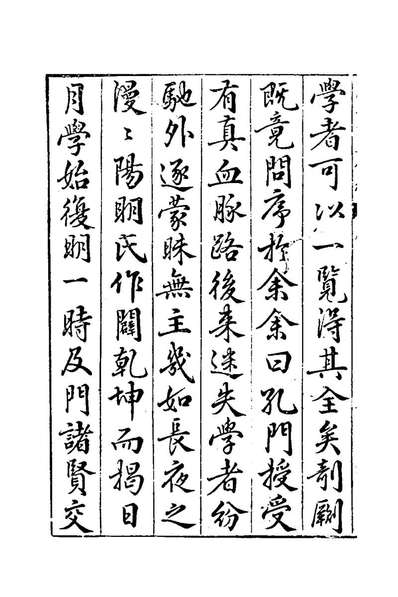 學者可以一覽得其全矣剞劂
既竟問序於余余曰孔門授受
有真血脉路後来迷失學者紛
馳外逐蒙昧無主幾如長夜之
漫〻陽明氏作闢乾坤而揭日
月學始復明一時及門諸賢交